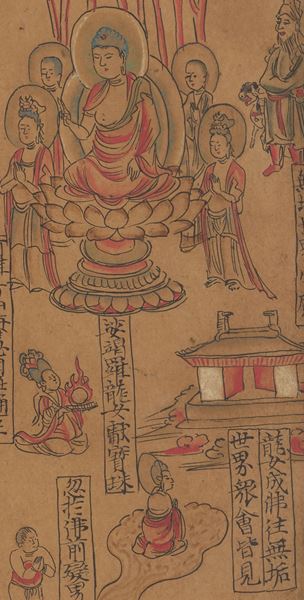 龍女成佛往無垢
世界眾會皆見
娑竭羅龍女獻寶珠
忽扵佛前變男